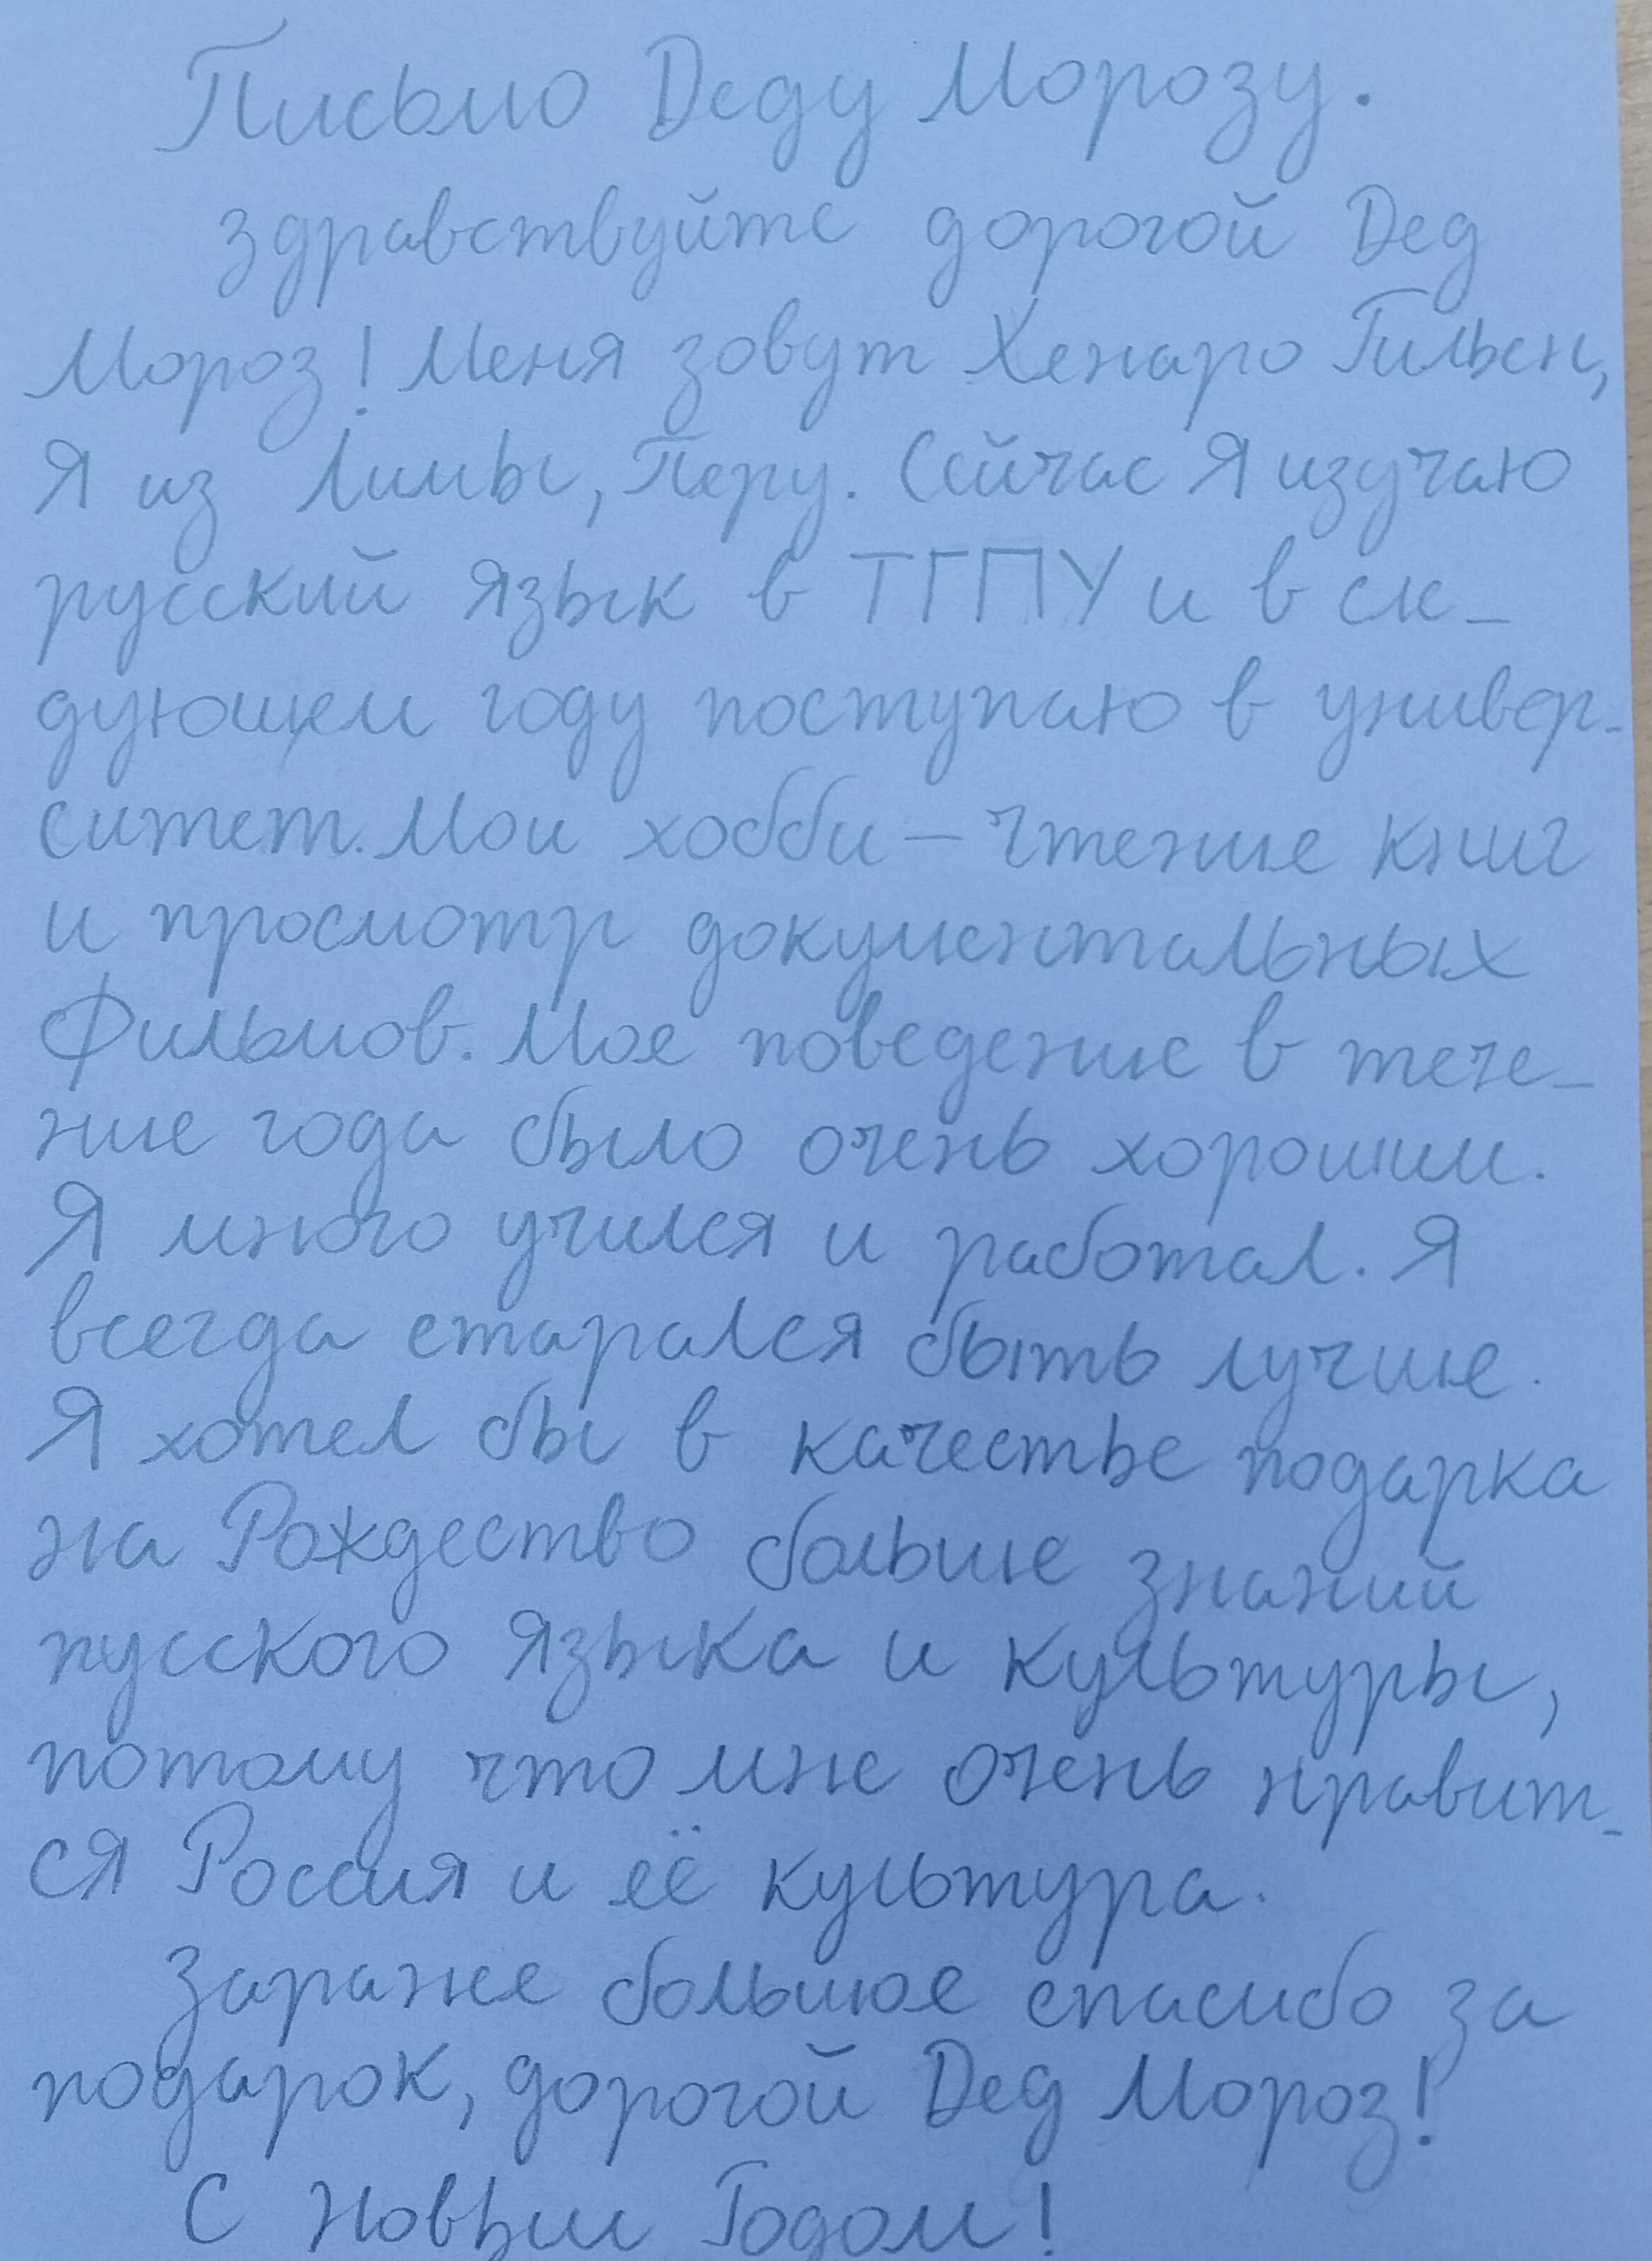 Письмо Деду Морозу.
здравствуйте дорогой Дед
Мороз! Меня зовут Хенаро Гильен,
Я из Лимы, Перу. Сейчас Я изучаю
русский язык в ТГПУ и в сле-
дующем году поступаю в универ-
ситет. Мои хобби – чтение книг
и просмотр документальных
Фильмов. Мое поведение в тече-
ние года было очень хорошим.
Я много учился и работал. Я
всегда старался быть лучше.
Я хотел бы в качестве подарка
на Рождество больше знаний
русского языка и культуры,
потому что мне очень нравит-
ся Россия и её культура.
Заранее большое спасибо за
подарок, дорогой Дед Мороз!
С Новым Годом!